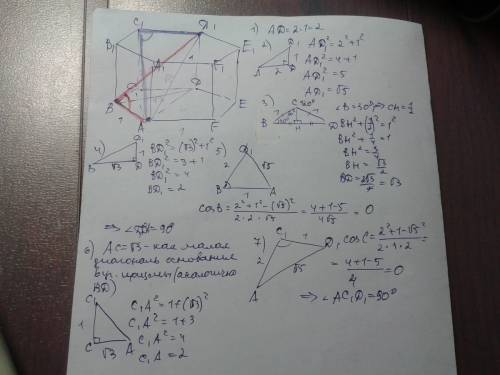 C₁
D₁
B₁
A₁
E₁
F₁
1
C
D
B
E
1
A
F
1
1) AD=2·1=2
2)
D₁
1
A 2 D
AD₁²=2²+1²
AD₁²=4+1
AD₁²=5
AD₁=√5
3)
C 120°
1 1
B H D
∠B=30° ⇒ CH=1/2
BH²+(1/2)²=1²
BH²+1/4=1
BH²=3/4
BH=√3/2
BD=2√3/2=√3
4)
D₁
1
B √3 D
BD₁²=(√3)²+1²
BD₁²=3+1
BD₁²=4
BD₁=2
5)
D₁
2 √5
B 1 A
cosB=(2²+1²-(√5)²)/(2·2·√5)=(4+1-5)/(4√5)=0
⇒ ∠B=90°
6) AC=√3 - как малая
диагональ основания
призмы (аналогично
BD)
C₁
1
C √3 A
C₁A²=1+(√3)²
C₁A²=1+3
C₁A²=4
C₁A=2
7)
C₁ 1 D₁
2 √5
A
cosC=(2²+1-√5²)/(2·1·2)=
=(4+1-5)/4=0
⇒ ∠AC₁D₁=90°